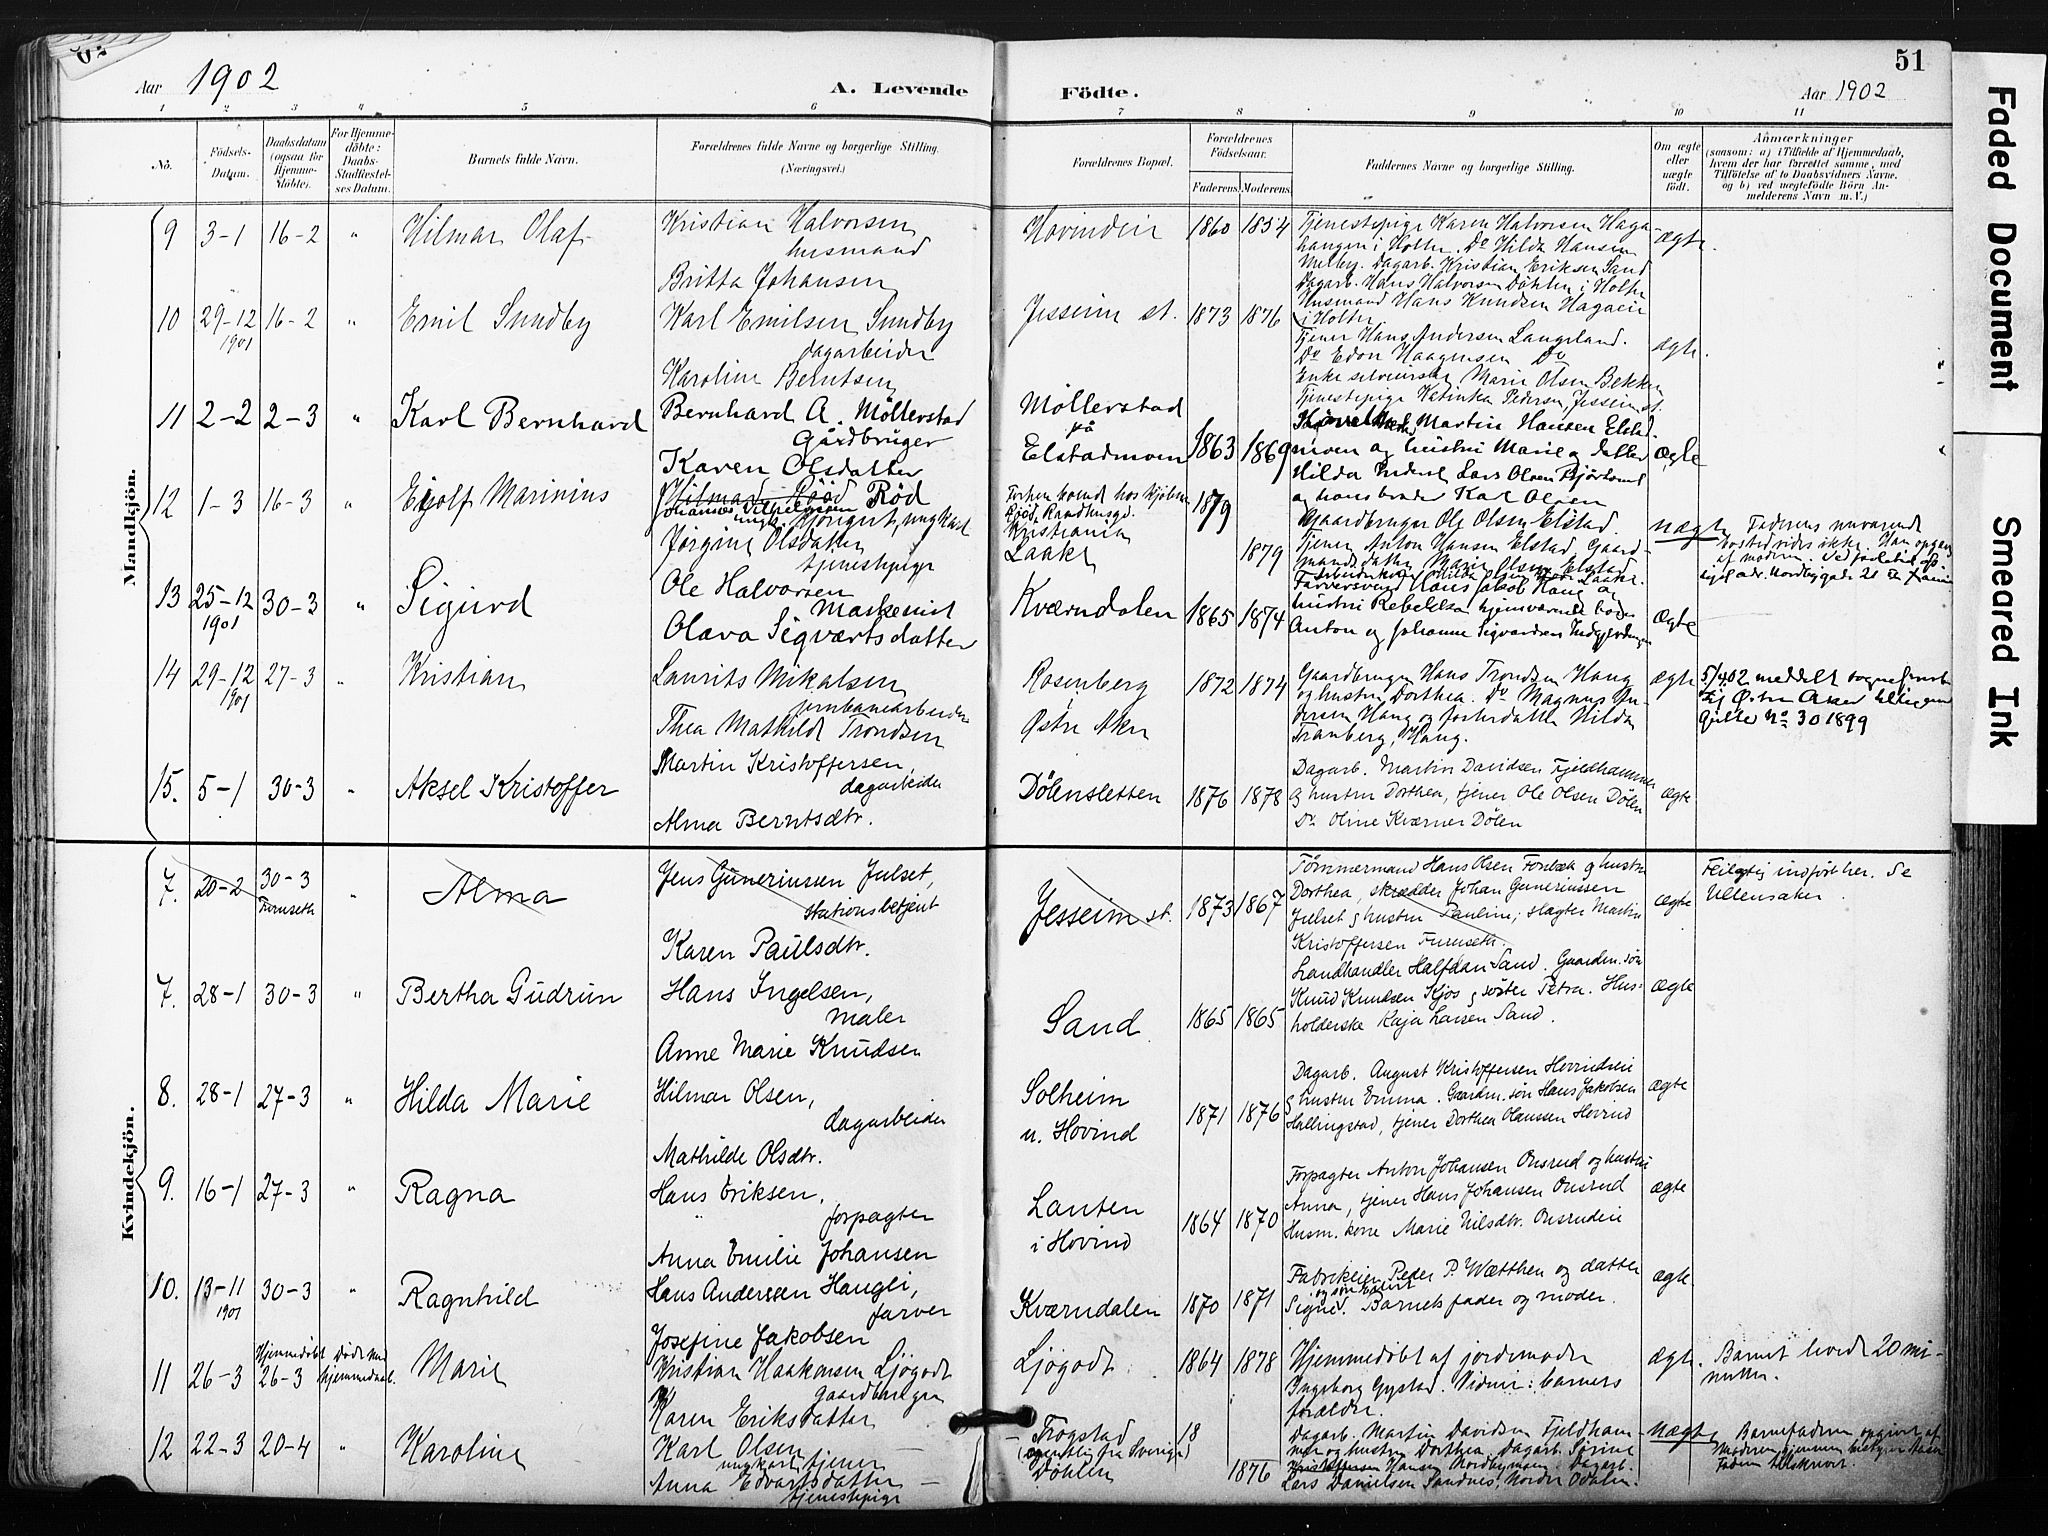 51
Aar 1902
A. Levende
Födte.
Aar 1902
1 2 3 4 5 6 7 8 9 10 11
No.
Födsels-Datum.
Daabsdatum (ogsaa for Hjemme-döbte).
For Hjemme-döbte: Daabs-Stadfæstel-ses Datum.
Barnets fulde Navn.
Forældrenes fulde Navne og borgerlige Stilling. (Næringsvei.)
Forældrenes Bopæl.
Forældrenes Födselsaar.
Faderens. Moderens.
Faddernes Navne og borgerlige Stilling.
Om ægte eller uægte födt.
Anmærkninger
(saasom: a) i Tilfælde af Hjemmedaab,
hvem der har forrettet samme, med
Tilföielse af to Daabsvidners Navne.
og b) ved uægtefödte Börn An-
melderens Navn m. V.)
Mandkjön.
9 3-1 16-2 " Hilmar Olaf
Kristian Halvorsen
husmand
Britta Johansen
Hovindeie 1860 1854
Tjenestepige Karen Halvorsen Haga-
hangen i Holter. Do Hilda Hansen
Melby. Dagarb. Kristian Eriksen Sand
Dagarb. Hans Halvorsen Döhlen i Holter
Husmand Hans Knudsen Hagaeie
i Holter
ægte.
10 29-12 1901 16-2 " Emil Sundby
Karl Emilsen Sundby
dagarbeider
Karoline Berntsen
Jesseim st. 1873 1876
Tjener Hans Andersen Langeland.
Do Edon Haagensen Do
Enke Marie Olsen Bekken
Tjenestepige Katinka Pedersen, Jesseim st.
ægte.
11 2-2 2-3 " Karl Bernhard
Bernhard A. Möllerstad
Gårdbruger
Karen Olsdatter
Möllerstad
på
Elstadmoen 1863 1869
Martin Hansen Elstad-
moen og hustru Marie og datter
Hilda Lars Olsen
og hans broder Karl Olsen
ægte
12 1-3 16-3 " Ejolf Marinius
Hilmar Rööd Röd
Johannes Vilhelmsen
ungk.
Jørgine Olsdatter
tjenestepige
Kristiania
Laake
1879
1879
Gaardbruger Ole Olsen Elstad.
Tjener Anton Hansen Elstad Gaard-
mandsdatter Marie Olsen Elstad
uægte
Faderens nuværende
bosted vides ikke. Han opgives
af moderen.
13 25-12 1901 30-3 " Sigurd
Ole Halvorsen
Maskenist
Olava Sigvartsdatter
Kværndalen 1865 1874
Farversvend Hans Jakob Haug og
hustru Rebekka
Anton og Johanne Sigvardsen
ægte
14 29-12 1901 27-3 " Kristian
Laurits Mikalsen
jernbanearbeider
Thea Mathilde Trondsen
Rosenberg
Østre Aker
1872 1874
Gaardbruger Hans Trondsen Haug
og hustru Dorthea. Do Magnus An-
dersen Haug og fosterdatter Hilda
Tranberg, Haug.
ægte
5/4 02 meddelt
Østre Aker
No 30 1899
15. 5-1 30-3 " Aksel Kristoffer
Martin Kristoffersen,
dagarbeider
Alma Berntsdtr.
Dölensletten 1876 1878
Dagarb. Martin Davidsen Fjeldhammer
og hustru Dorthea, tjener Ole Olsen Dölen
Do Oline Kværner Dölen
ægte
Kvindekjön.
7. 20-2 30-3 Furuseth " Alma
Jens Gunerinssen Julset,
stationsbetjent
Karen Paulsdtr.
Jesseim st. 1873 1867
Tømmermand Hans Olsen og hustru
Dorthea, skrædder Johan Gunerinssen
Julset og hustru Pauline; slagter Martin
Kristoffersen Furuseth.
ægte
Feilagtig indført her. Se
Ullensaker.
7. 28-1 30-3 " Bertha Gudrun
Hans Ingelsen,
maler
Anne Marie Knudsen
Sand 1865 1865
Landhandler Halfdan Sand. Gaardm. søn
Knud Knudsen Kjos og søster Petra. Hus-
holderske Kaja Larsen Sand.
ægte
8. 28-1 27-3 " Hilda Marie
Hilmar Olsen,
dagarbeider
Mathilde Olsdtr.
Solheim
u. Hovind
1871 1876
Dagarb. August Kristoffersen Hovindeie
og hustru Emma. Gaardm. søn Hans Jakobsen
Hallingstad, tjener Dorthea Hanssen Hovind
ægte
9. 16-1 27-3 " Ragna
Hans Eriksen,
forpagter
Anna Emilie Johansen
Lauten
i Hovind
1864 1870
Forpagter Anton Johansen Onsrud og hustru
Anna, tjener Hans Johansen Onsrud
Husm. kone Marie Nilsdtr. Onsrudeie
ægte
10. 13-11 1901 30-3 " Ragnhild
Hans Anderssen Haugli,
farver
Josefine Jakobsen
Kværndalen 1870 1871
Fabrikeier Peder P. Wætthen og datter
Signe. Barnets fader og moder.
ægte
11 26-3 Hjemmedöbt 26-3 Døde ved hjemmedaab. Marie
Kristian Haakonsen Ljögodt
Gaardbruger
Karen Eriksdatter
Ljögodt 1864 1878
Hjemmedöbt af jordemoder
Ingeborg Gystad. Vidner: barnets
forældre.
ægte.
Barnet levede 20 mi-
nutter.
12 22-3 20-4 " Karoline
Karl Olsen
ungkarl tjener
Anna Edvartsdatter
tjenestepige
Frogstad
(egentlig fra Sverige)
Döhlen
18
1876
Dagarb. Martin Davidsen Fjeldham-
mer og hustru Dorthea. Dagarb. Sörine
Hansen Nordbymoen. Dagarb.
Lars Danielsen Sandnes, Nordre Odalen.
Uægte
Barnefaderen opgivet af
Moderen,
Faderen tilskrevet.
Faded Document
Smeared Ink